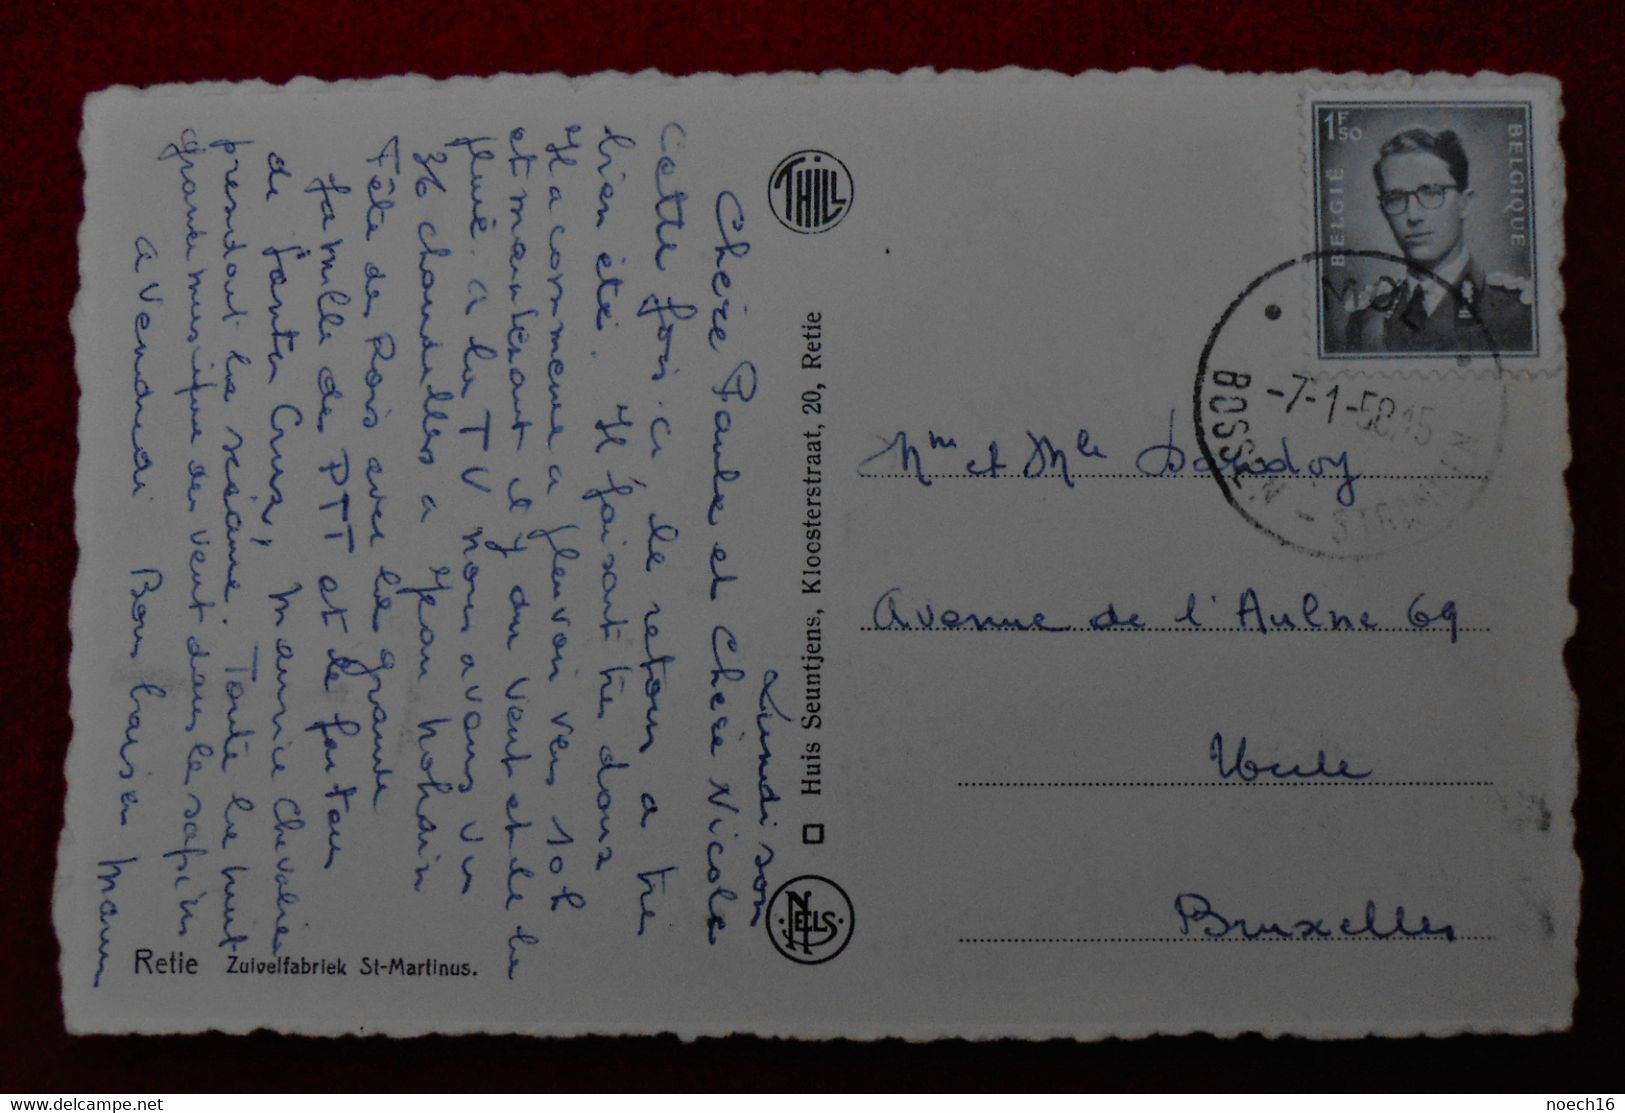 Lundi soir
Chère Paule et Chère Nicole
Cette fois ci le retour a très
bien été. Il faisait très doux
Il a commencé a pleuvoir vers 10h
et maintenant il y a du vent et de la
pluie. A la TV nous avons vu
36 chandelles a Jean Nohain
Fête des Rois avec la grande
famille des PTT et le facteur
de Santa Cruz, Maurice Chevalier
prendant la séance. Toute la nuit
grande musique du vent dans le sapin
a Vendredi Bons baisers Mamn
Retie Zuivelfabriek St-Martinus.
THILL
Huis Seuntjens, Kloosterstraat, 20, Retie
NELS
1F50
BELGIË
BELGIQUE
MOL
-7-1-58.15
BOSSEN - STRAATEN
Mm et Mle
Avenue de l'Aulne 69
Uccle
Bruxelles
noech16